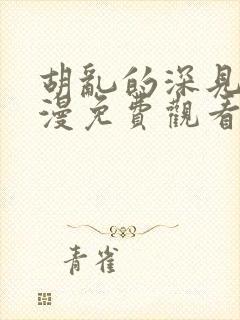 胡亂的深見
漫免費觀看
青雀